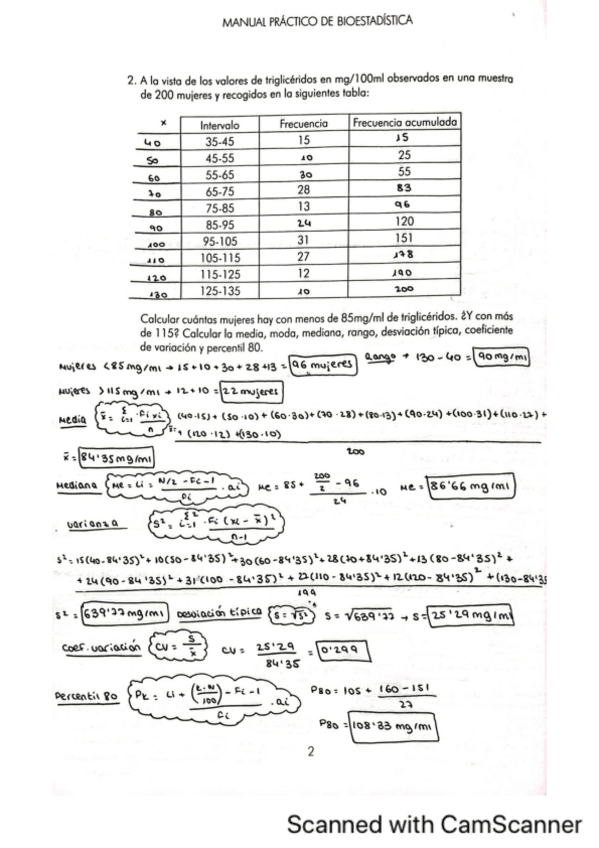 MANUAL PRÁCTICO DE BIOESTADÍSTICA
2. A la vista de los valores de triglicéridos en mg/100ml observados en una muestra
de 200 mujeres y recogidos en la siguientes tabla:
x Intervalo Frecuencia Frecuencia acumulada
40 35-45 15 15
50 45-55 10 25
60 55-65 30 55
70 65-75 28 83
80 75-85 13 96
90 85-95 24 120
100 95-105 31 151
110 105-115 27 178
120 115-125 12 190
130 125-135 10 200
Calcular cuántas mujeres hay con menos de 85mg/ml de triglicéridos. ¿Y con más
de 115? Calcular la media, moda, mediana, rango, desviación típica, coeficiente
de variación y percentil 80.
Mujeres <85mg/ml → 15+10+30+28+13 = 96 mujeres Rango → 130-40 = 90mg/ml
Mujeres >115mg/ml → 12+10 = 22 mujeres
Media x̄ = Σ i=1 · fi xi / n x̄ = (40·15) + (50·10) + (60·30) + (70·28) + (80·13) + (90·24) + (100·31) + (110·27) +
+ (120·12) + (130·10)
200
x̄ = 84'35mg/ml
Mediana Me = Li = N/2 - Fi-1 / fi · ai Me = 85 + 200/2 - 96 / 24 · 10 Me = 86'66 mg/ml
Varianza S² = Σ i=1 · fi (xi - x̄)² / n-1
S² = 15(40-84'35)² + 10(50-84'35)² + 30(60-84'35)² + 28(70+84'35)² + 13(80-84'35)² +
+ 24(90-84'35)² + 31(100-84'35)² + 27(110-84'35)² + 12(120-84'35)² + (130-84'35
199
S² = 639'77mg/ml Desviación típica S = √S² S = √639'77 → S = 25'29mg/ml
Coef. variación CV = S / x̄ CV = 25'29 / 84'35 = 0'299
Percentil 80 Pk = Li + (k·N / 100) - Fi-1 / fi · ai P80 = 105 + 160-151 / 27
P80 = 108'33 mg/ml
2
Scanned with CamScanner